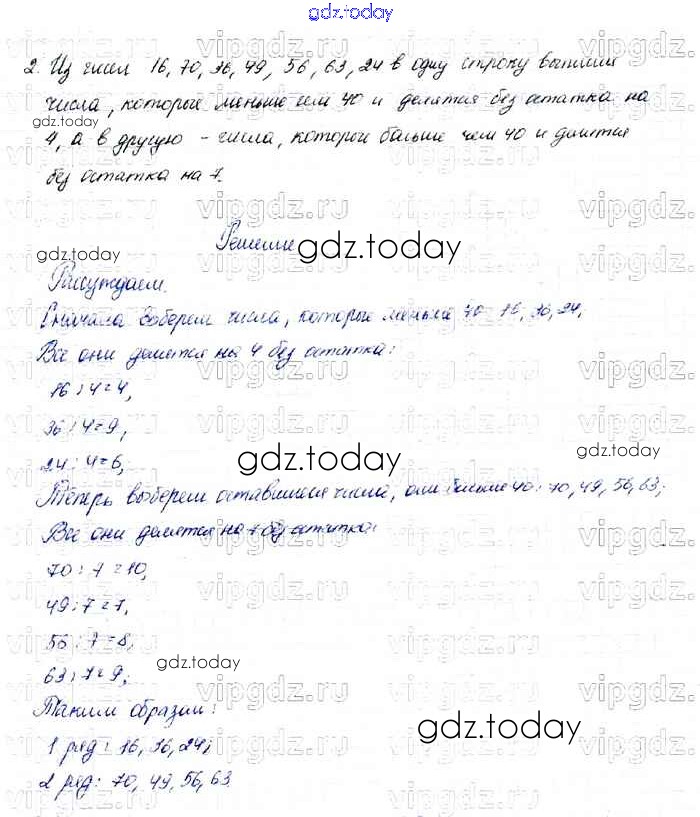 gdz.today
2. Из чисел 16, 70, 36, 49, 56, 63, 24 в одну строку выпиши
числа, которые меньше чем 40 и делятся без остатка на
4, а в другую - числа, которые больше чем 40 и делятся
без остатка на 7.
Решение
gdz.today
Рассуждаем.
Сначала выберем числа, которые меньше 40 16, 36, 24.
Все они делятся на 4 без остатка:
16 : 4 = 4,
36 : 4 = 9,
24 : 4 = 6;
gdz.today
Теперь выберем оставшиеся числа, они больше 40: 70, 49, 56, 63;
Все они делятся на 7 без остатка:
70 : 7 = 10,
49 : 7 = 7,
56 : 7 = 8,
63 : 7 = 9;
gdz.today
Таким образом:
1 ряд: 16, 36, 24;
2 ряд: 70, 49, 56, 63
gdz.today
vipgdz.ru